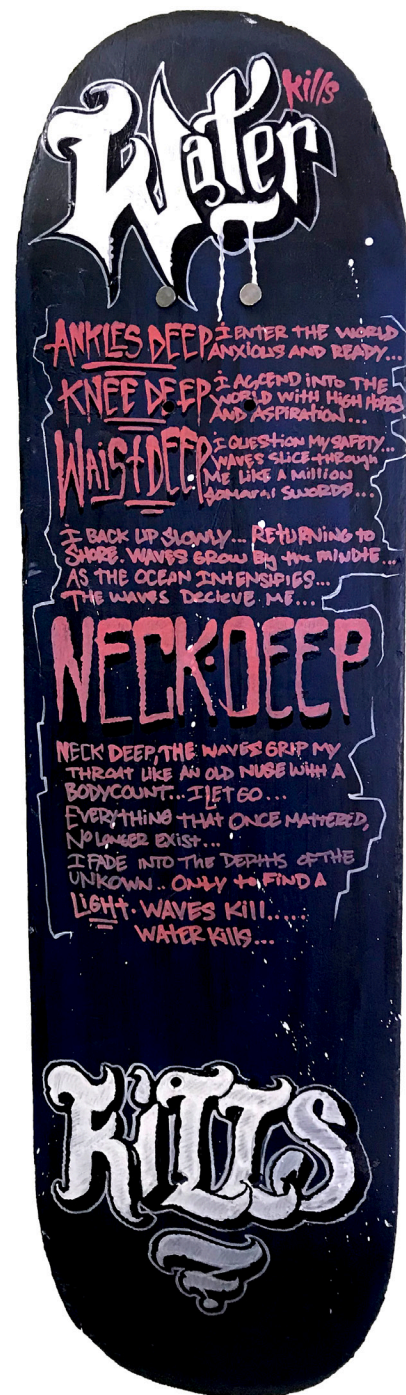 Water
Kills
ANKLES DEEP I ENTER THE WORLD
ANXIOUS AND READY...
KNEE DEEP I ACCEND INTO THE
WORLD WITH HIGH HOPES
AND ASPIRATION...
WAIST DEEP I QUESTION MY SAFETY...
WAVES SLICE THROUGH
ME LIKE A MILLION
SAMURAI SWORDS...
I BACK UP SLOWLY... RETURNING TO
SHORE. WAVES GROW BY the MINUTE...
AS THE OCEAN INTENSIFIES...
THE WAVES DECIEVE ME...
NECK·DEEP
NECK DEEP, THE WAVES GRIP MY
THROAT LIKE AN OLD NUSE WITH A
BODYCOUNT... I LET GO...
EVERYTHING THAT ONCE MATTERED,
NO LONGER EXIST...
I FADE INTO THE DEPTHS OF THE
UNKOWN.. ONLY to FIND A
LIGHT. WAVES KILL.....
WATER KILLS...
KILLS